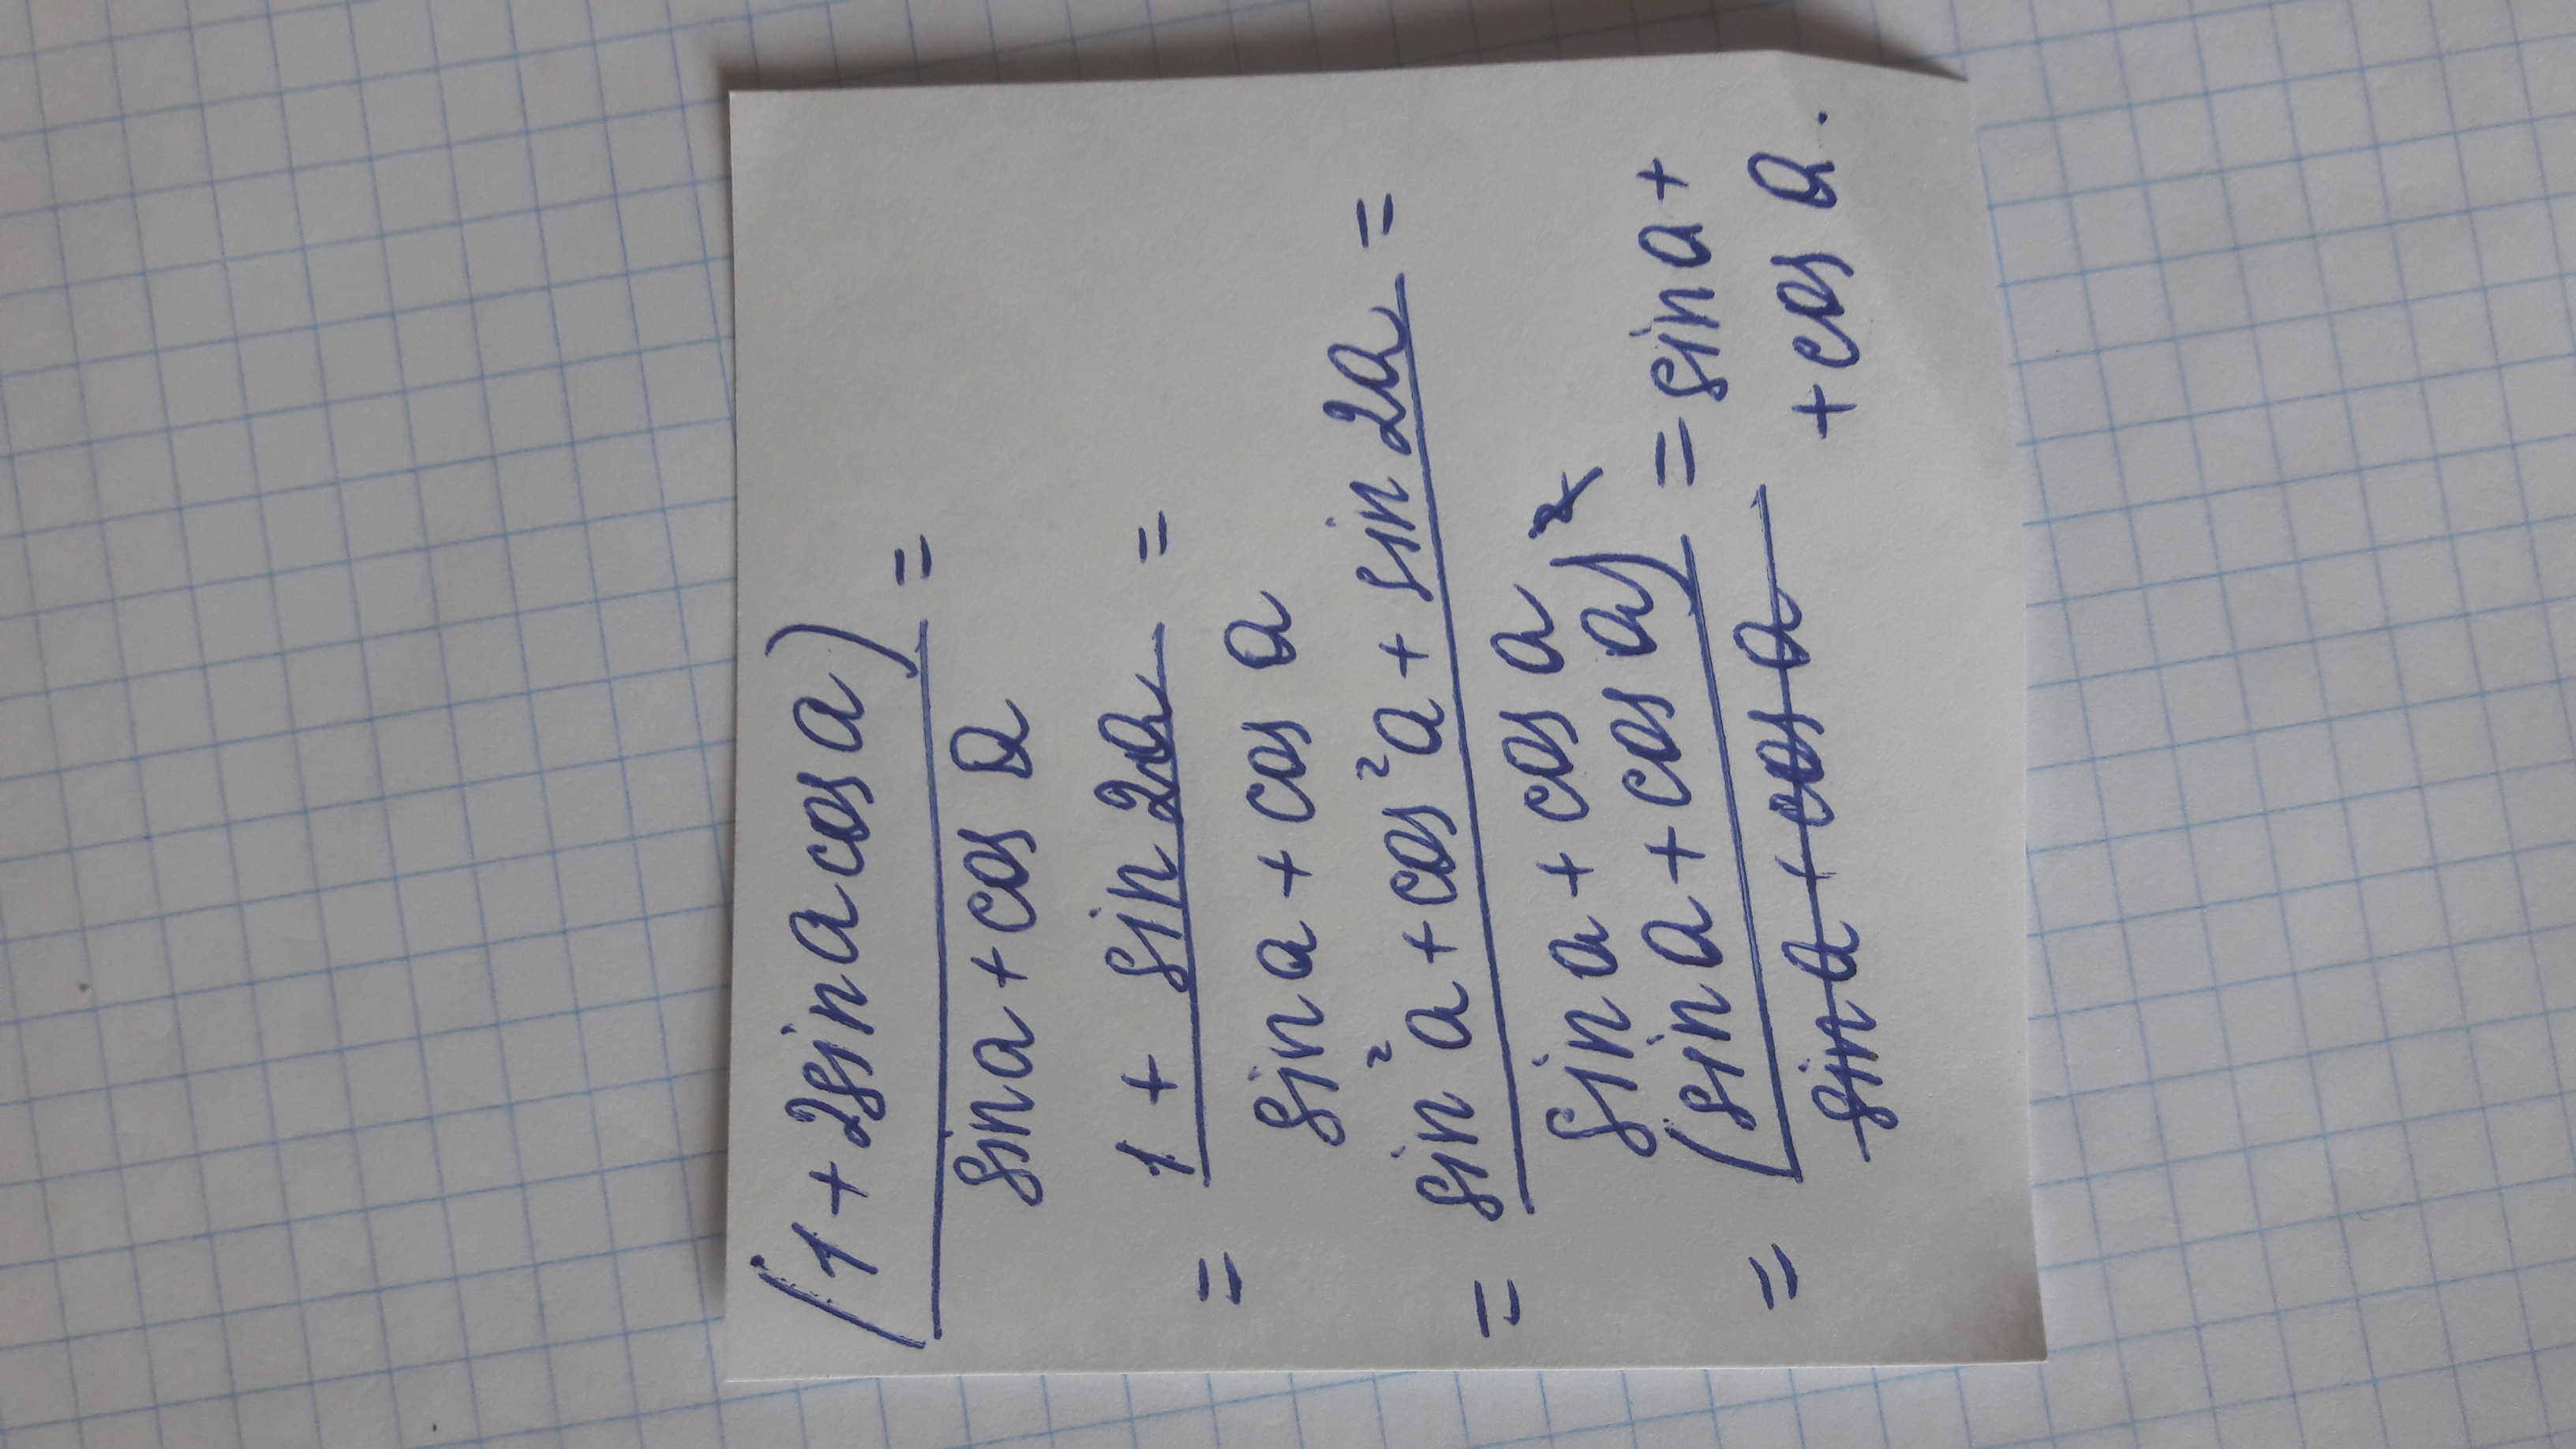 (1+2sin a cos a) =
sin a + cos a
= 1 + sin 2a =
sin a + cos a
= sin²a + cos²a + sin 2a =
sin a + cos a
= (sin a + cos a)² = sin a +
sin a + cos a + cos a.